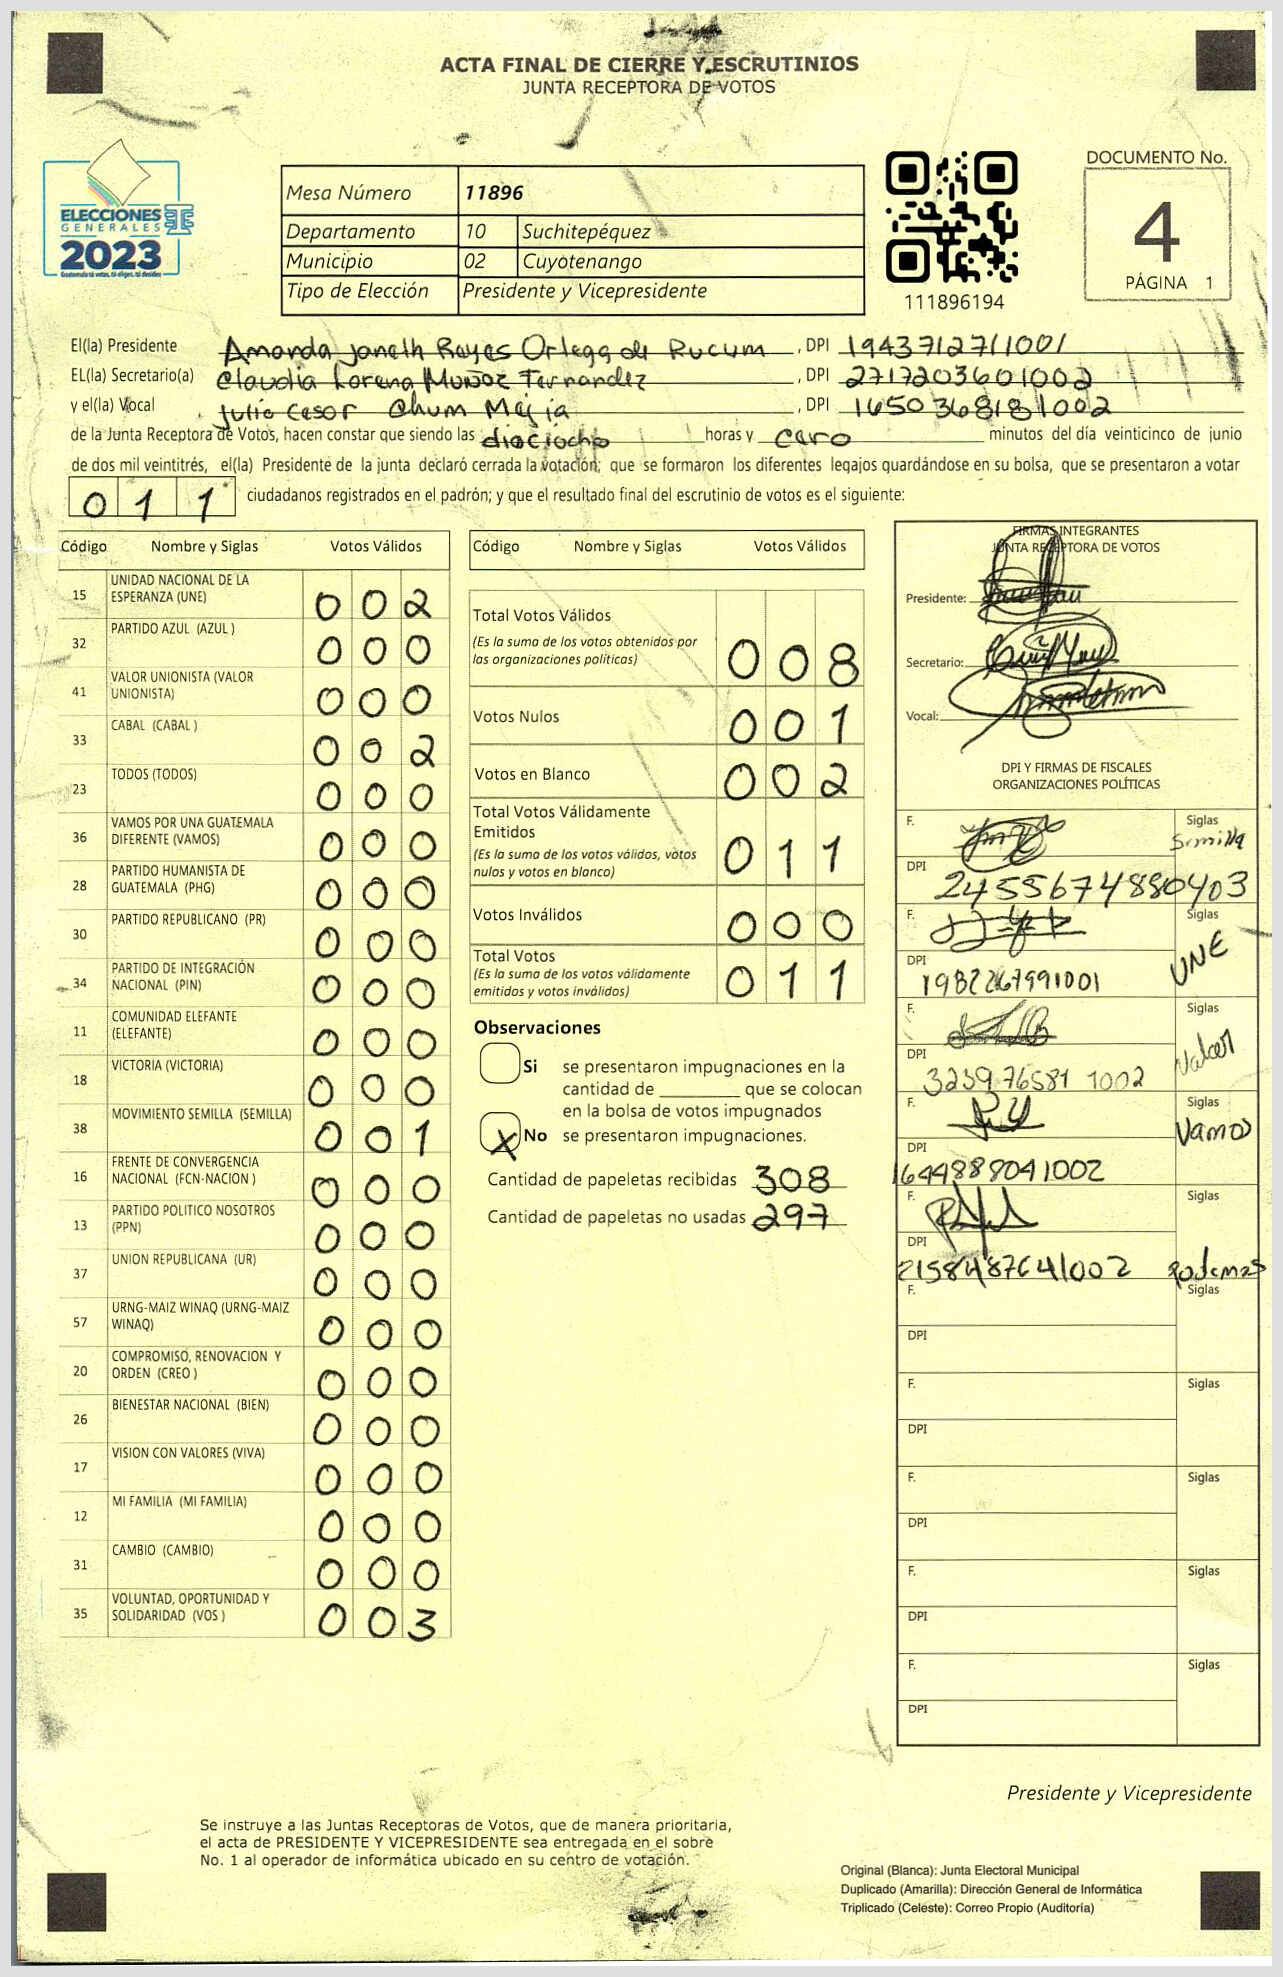 ACTA FINAL DE CIERRE Y ESCRUTINIOS
JUNTA RECEPTORA DE VOTOS
ELECCIONES
GENERALES
2023
Guatemala tú votas, tú eliges, tú decides
Mesa Número 11896
Departamento 10 Suchitepéquez
Municipio 02 Cuyotenango
Tipo de Elección Presidente y Vicepresidente
111896194
DOCUMENTO No.
4
PÁGINA 1
El(la) Presidente Amanda Janeth Reyes Ortega de Rucum, DPI 1943712711001
EL(la) Secretario(a) Claudia Lorena Muñoz Fernandez, DPI 2717203601002
y el(la) Vocal Julio Cesar Chum Mejia, DPI 1650368181002
de la Junta Receptora de Votos, hacen constar que siendo las dieciocho horas y cero minutos del día veinticinco de junio
de dos mil veintitrés, el(la) Presidente de la junta declaró cerrada la votación; que se formaron los diferentes legajos guardándose en su bolsa, que se presentaron a votar
011 ciudadanos registrados en el padrón; y que el resultado final del escrutinio de votos es el siguiente:
Código Nombre y Siglas Votos Válidos
15 UNIDAD NACIONAL DE LA ESPERANZA (UNE) 002
32 PARTIDO AZUL (AZUL ) 000
41 VALOR UNIONISTA (VALOR UNIONISTA) 000
33 CABAL (CABAL ) 002
23 TODOS (TODOS) 000
36 VAMOS POR UNA GUATEMALA DIFERENTE (VAMOS) 000
28 PARTIDO HUMANISTA DE GUATEMALA (PHG) 000
30 PARTIDO REPUBLICANO (PR) 000
34 PARTIDO DE INTEGRACIÓN NACIONAL (PIN) 000
11 COMUNIDAD ELEFANTE (ELEFANTE) 000
18 VICTORIA (VICTORIA) 000
38 MOVIMIENTO SEMILLA (SEMILLA) 001
16 FRENTE DE CONVERGENCIA NACIONAL (FCN-NACION ) 000
13 PARTIDO POLITICO NOSOTROS (PPN) 000
37 UNION REPUBLICANA (UR) 000
57 URNG-MAIZ WINAQ (URNG-MAIZ WINAQ) 000
20 COMPROMISO, RENOVACION Y ORDEN (CREO ) 000
26 BIENESTAR NACIONAL (BIEN) 000
17 VISION CON VALORES (VIVA) 000
12 MI FAMILIA (MI FAMILIA) 000
31 CAMBIO (CAMBIO) 000
35 VOLUNTAD, OPORTUNIDAD Y SOLIDARIDAD (VOS ) 003
Código Nombre y Siglas Votos Válidos
Total Votos Válidos 008
(Es la suma de los votos obtenidos por
las organizaciones políticas)
Votos Nulos 001
Votos en Blanco 002
Total Votos Válidamente
Emitidos 011
(Es la suma de los votos válidos, votos
nulos y votos en blanco)
Votos Inválidos 000
Total Votos 011
(Es la suma de los votos válidamente
emitidos y votos inválidos)
Observaciones
Si se presentaron impugnaciones en la
cantidad de ________ que se colocan
en la bolsa de votos impugnados
X No se presentaron impugnaciones.
Cantidad de papeletas recibidas 308
Cantidad de papeletas no usadas 297
FIRMAS INTEGRANTES
JUNTA RECEPTORA DE VOTOS
Presidente:
Secretario:
Vocal:
DPI Y FIRMAS DE FISCALES
ORGANIZACIONES POLÍTICAS
F. Siglas Semilla
DPI 2455674880403
F. Siglas UNE
DPI 1982267991001
F. Siglas Valor
DPI 3239765811002
F. Siglas Vamos
DPI 1644888041002
F. Siglas Podemos
DPI 2158487641002
F. Siglas
DPI
F. Siglas
DPI
F. Siglas
DPI
F. Siglas
DPI
F. Siglas
DPI
Presidente y Vicepresidente
Se instruye a las Juntas Receptoras de Votos, que de manera prioritaria,
el acta de PRESIDENTE Y VICEPRESIDENTE sea entregada en el sobre
No. 1 al operador de informática ubicado en su centro de votación.
Original (Blanca): Junta Electoral Municipal
Duplicado (Amarilla): Dirección General de Informática
Triplicado (Celeste): Correo Propio (Auditoría)